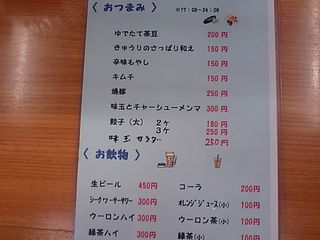 〈 おつまみ 〉 ※17:00～24:00
ゆでたて茶豆 200円
きゅうりのさっぱり和え 150円
辛味もやし 150円
キムチ 150円
焼豚 250円
味玉とチャーシューメンマ 300円
餃子（大） 2ケ 180円
3ケ 250円
味玉サラダ 250円
〈 お飲物 〉
生ビール 450円 コーラ 200円
シークワーサーサワー 300円 オレンジジュース(小) 100円
ウーロンハイ 300円 ウーロン茶(小) 100円
緑茶ハイ 300円 緑茶(小) 100円